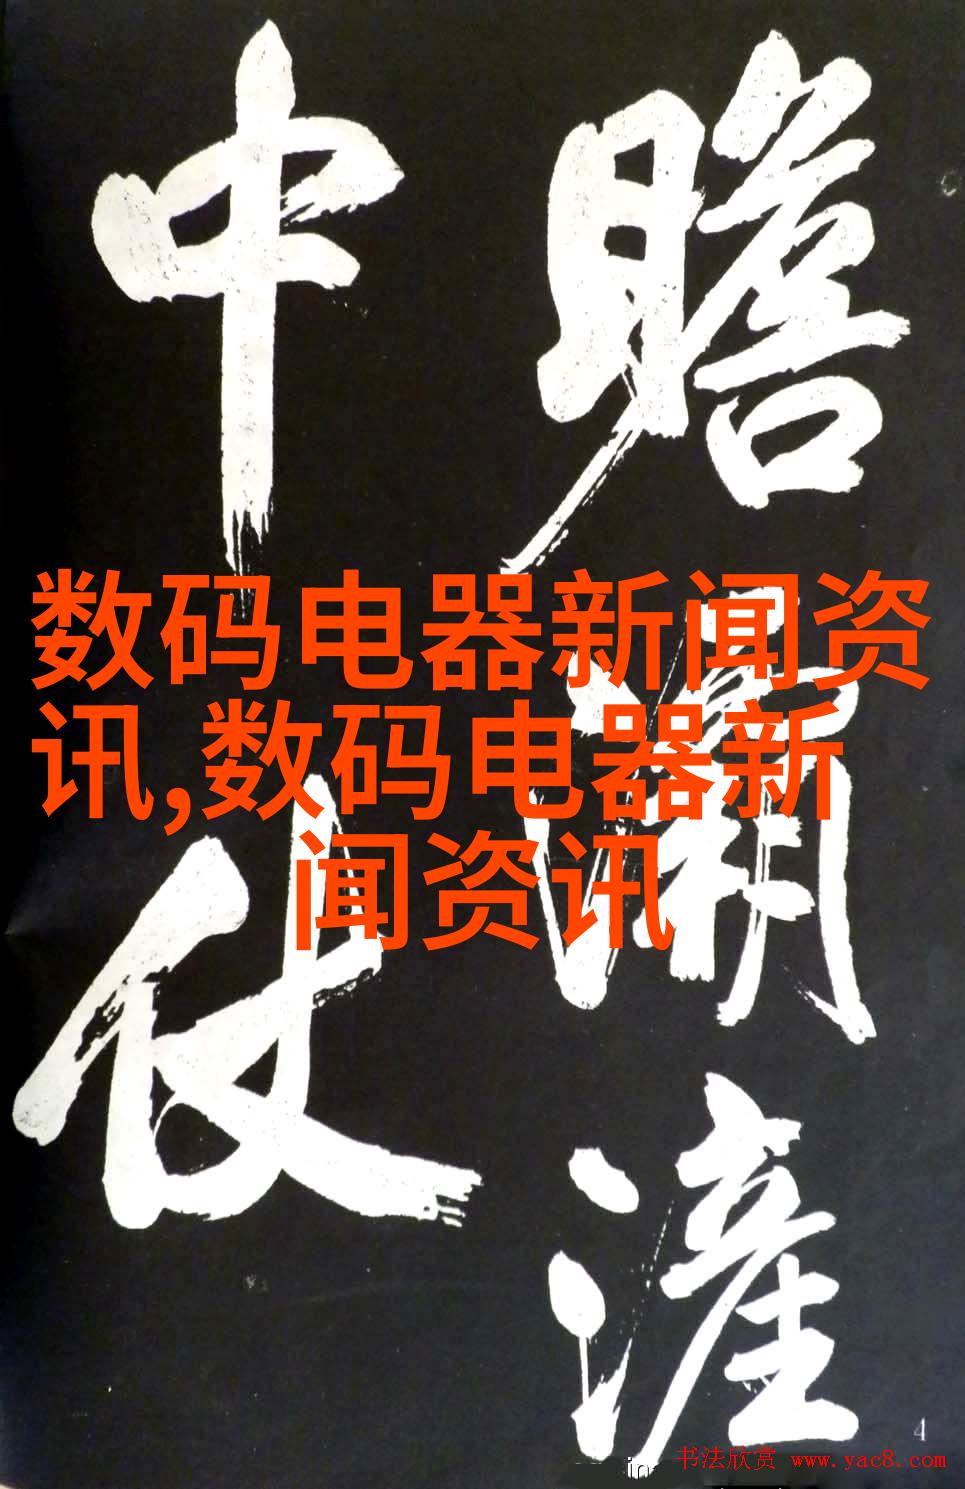 瞻
滹沱
中
仗
数码电器新闻资
讯,数码电器新
闻资讯
4
书法欣赏 www.yac8.com